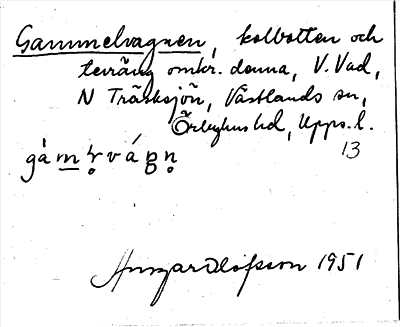 Gammelvagnen, kolbotten och
terräng omkr. denna, V. Vad,
N Träsksjön, Västlands sn,
Örbyhus hd, Upps. l.
13
Olofsson 1951